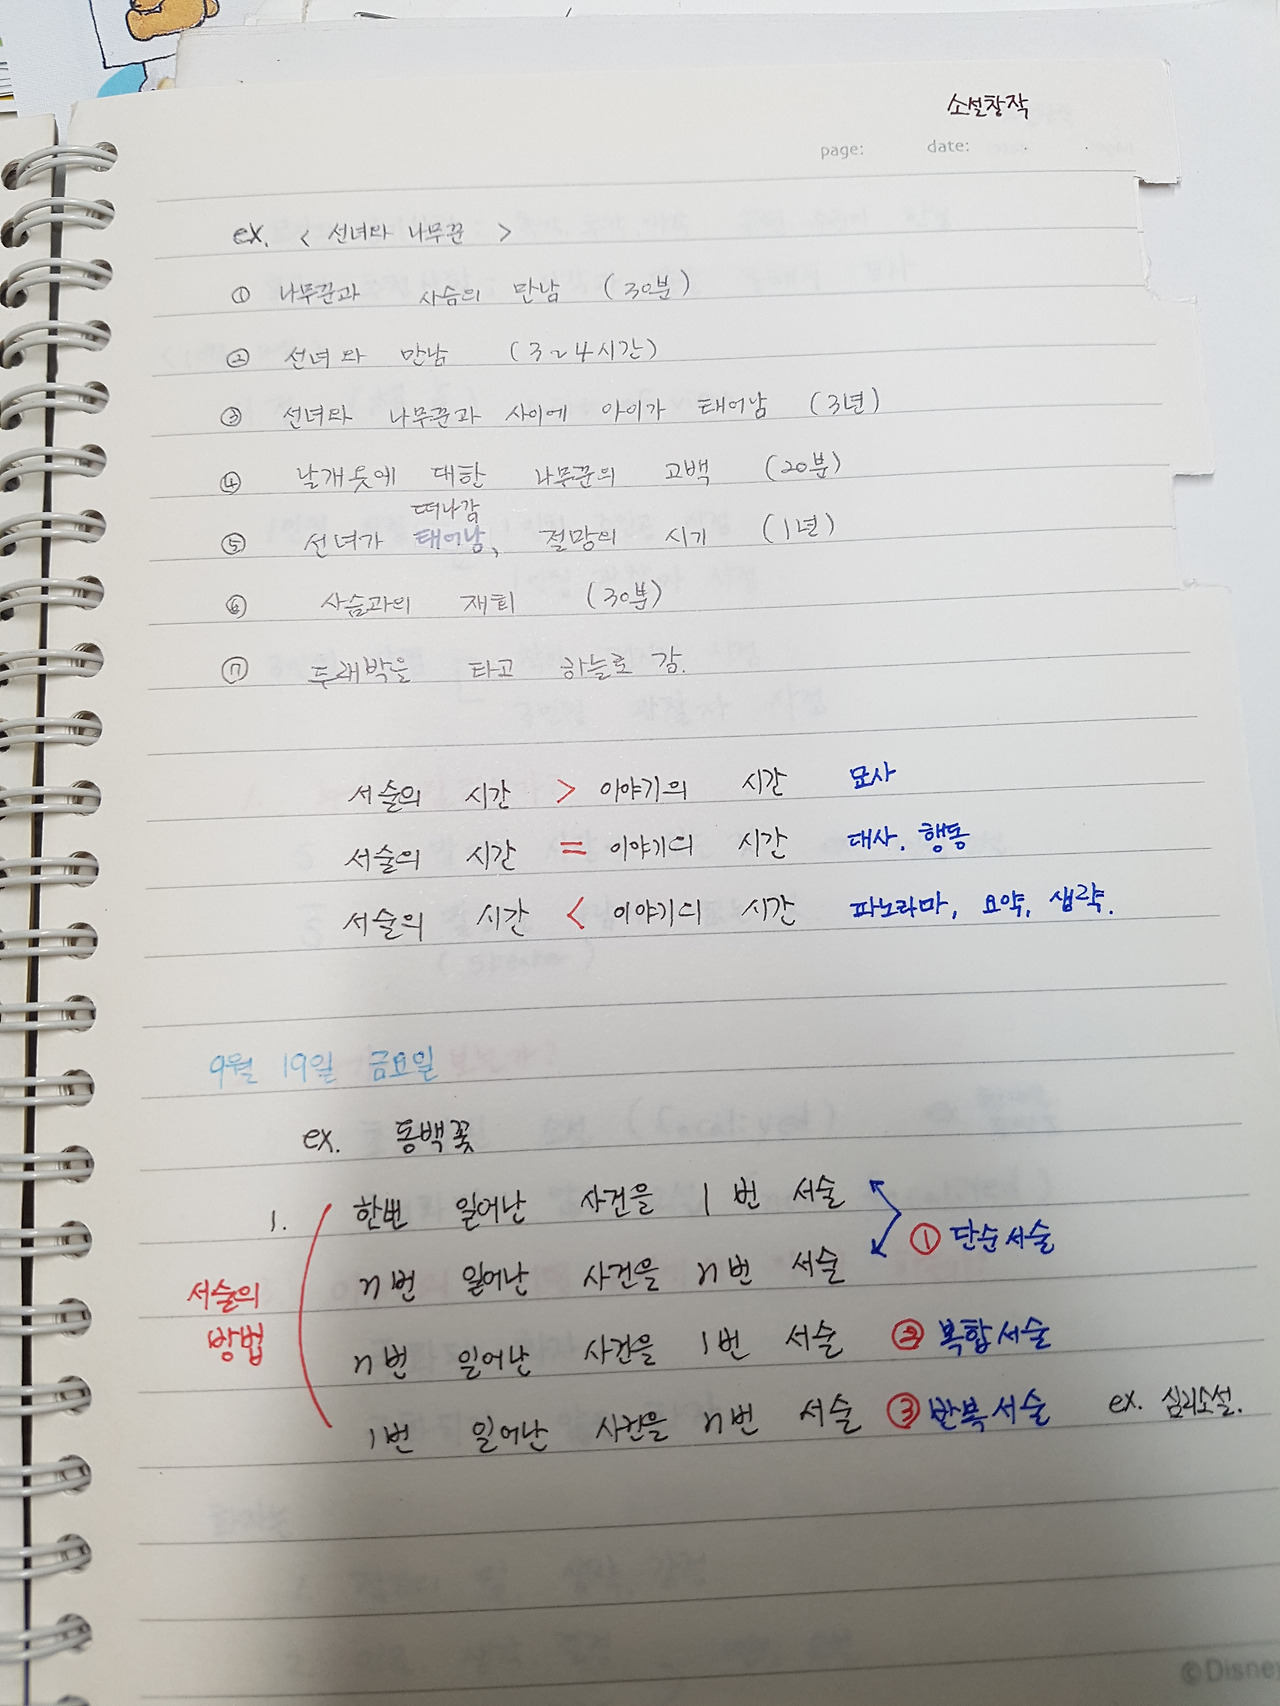 소설창작
page: date:
ex. < 선녀와 나무꾼 >
① 나무꾼과 사슴의 만남 (30분)
② 선녀와 만남 (3~4시간)
③ 선녀와 나무꾼과 사이에 아이가 태어남 (3년)
④ 날개옷에 대한 나무꾼의 고백 (20분)
떠나감
⑤ 선녀가 태어남, 절망의 시기 (1년)
⑥ 사슴과의 재회 (30분)
⑦ 두래박을 타고 하늘로 감.
서술의 시간 > 이야기의 시간 묘사
서술의 시간 = 이야기의 시간 대사. 행동
서술의 시간 < 이야기의 시간 파노라마, 요약, 생략.
9월 19일 금요일
ex. 동백꽃
1. 한번 일어난 사건을 1번 서술
① 단순서술
n번 일어난 사건을 n번 서술
서술의 방법
n번 일어난 사건을 1번 서술 ② 복합서술
1번 일어난 사건을 n번 서술 ③ 반복서술 ex. 심리소설.
©Disney